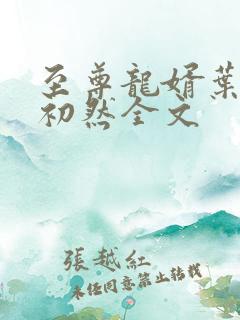 至尊龍婿葉
初然全文
張越紅
未任同意禁止转载